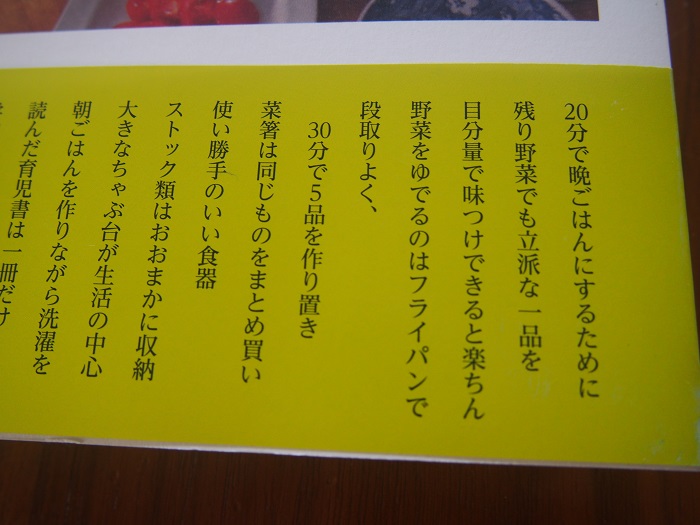 20分で晩ごはんにするために
残り野菜でも立派な一品を
目分量で味つけできると楽ちん
野菜をゆでるのはフライパンで
段取りよく、
30分で5品を作り置き
菜箸は同じものをまとめ買い
使い勝手のいい食器
ストック類はおおまかに収納
大きなちゃぶ台が生活の中心
朝ごはんを作りながら洗濯を
読んだ育児書は一冊だけ